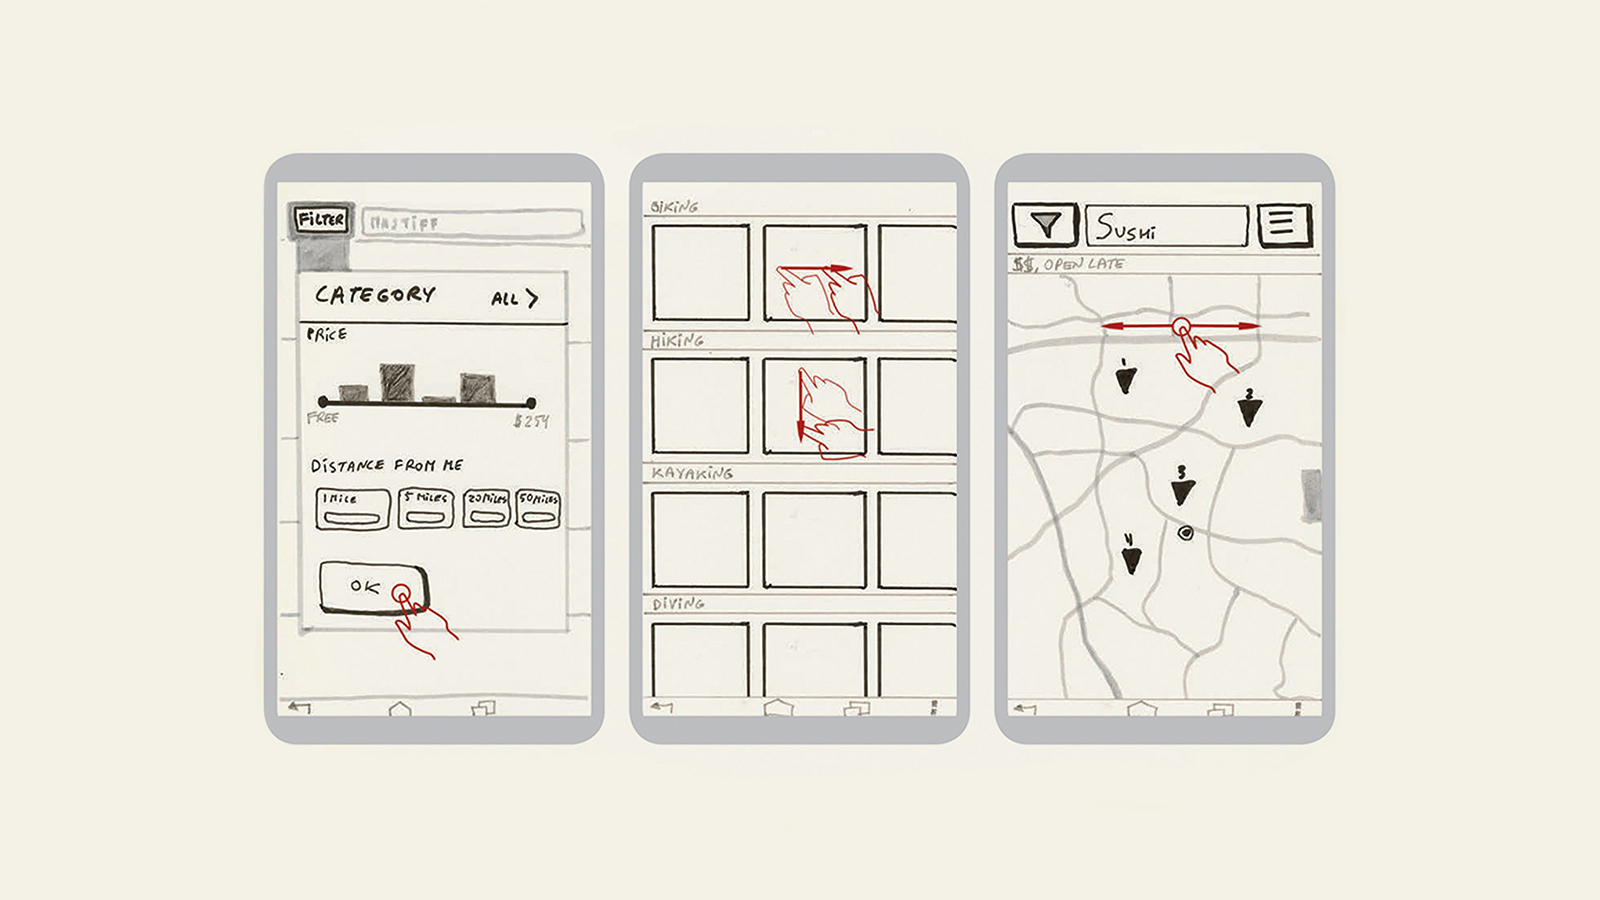 FILTER
MASTIFF
CATEGORY ALL >
PRICE
FREE $254
DISTANCE FROM ME
1 MILE 5 MILES 20 MILES 50 MILES
OK
BIKING
HIKING
KAYAKING
DIVING
SUSHI
$$, OPEN LATE
1
2
3
4